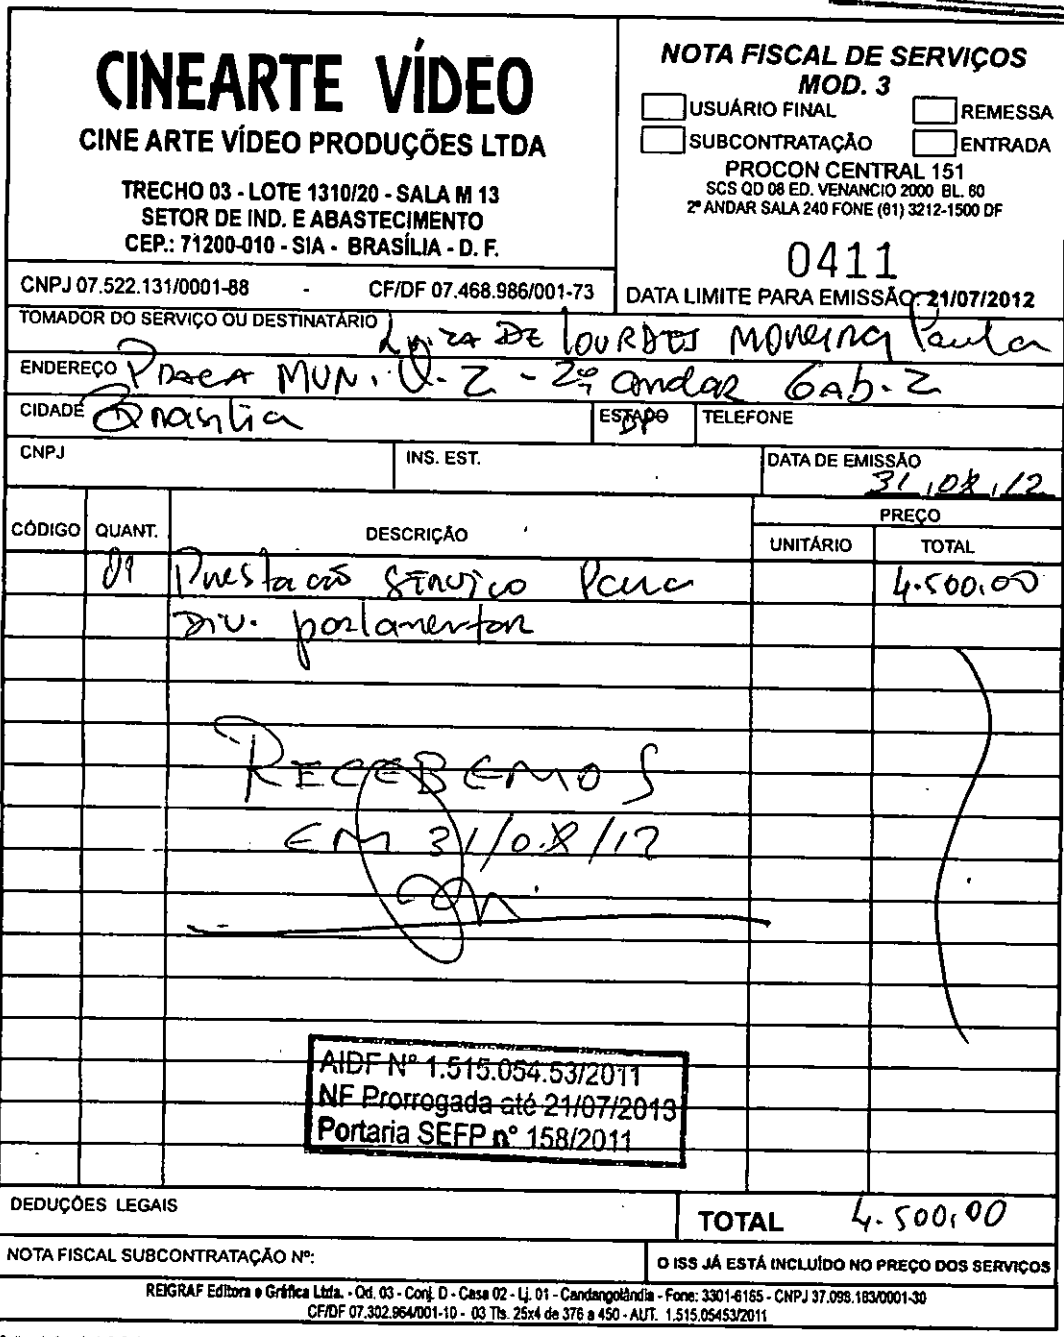 CINEARTE VÍDEO
CINE ARTE VÍDEO PRODUÇÕES LTDA
TRECHO 03 - LOTE 1310/20 - SALA M 13
SETOR DE IND. E ABASTECIMENTO
CEP.: 71200-010 - SIA - BRASÍLIA - D. F.
CNPJ 07.522.131/0001-88 - CF/DF 07.468.986/001-73
NOTA FISCAL DE SERVIÇOS
MOD. 3
USUÁRIO FINAL REMESSA
SUBCONTRATAÇÃO ENTRADA
PROCON CENTRAL 151
SCS QD 08 ED. VENANCIO 2000 BL. 60
2º ANDAR SALA 240 FONE (61) 3212-1500 DF
0411
DATA LIMITE PARA EMISSÃO: 21/07/2012
TOMADOR DO SERVIÇO OU DESTINATÁRIO Luiza DE LOURDES MOREIRA Paula
ENDEREÇO PRAÇA MUN. Q. 2 - 2º andar GAb. 2
CIDADE Brasilia ESTADO DF TELEFONE
CNPJ INS. EST. DATA DE EMISSÃO 31/08/12
CÓDIGO QUANT. DESCRIÇÃO PREÇO
UNITÁRIO TOTAL
01 Prestação SERVIÇO Para 4.500,00
DIV. parlamentar
RECEBEMOS
EM 31/08/12
AIDF Nº 1.515.054.53/2011
NF Prorrogada até 21/07/2013
Portaria SEFP nº 158/2011
DEDUÇÕES LEGAIS TOTAL 4.500,00
NOTA FISCAL SUBCONTRATAÇÃO Nº: O ISS JÁ ESTÁ INCLUÍDO NO PREÇO DOS SERVIÇOS
REIGRAF Editora e Gráfica Ltda. - Qd. 03 - Conj. D - Casa 02 - Lj. 01 - Candangolândia - Fone: 3301-6165 - CNPJ 37.098.183/0001-30
CF/DF 07.302.964/001-10 - 03 Tls. 25x4 de 376 a 450 - AUT. 1.515.05453/2011